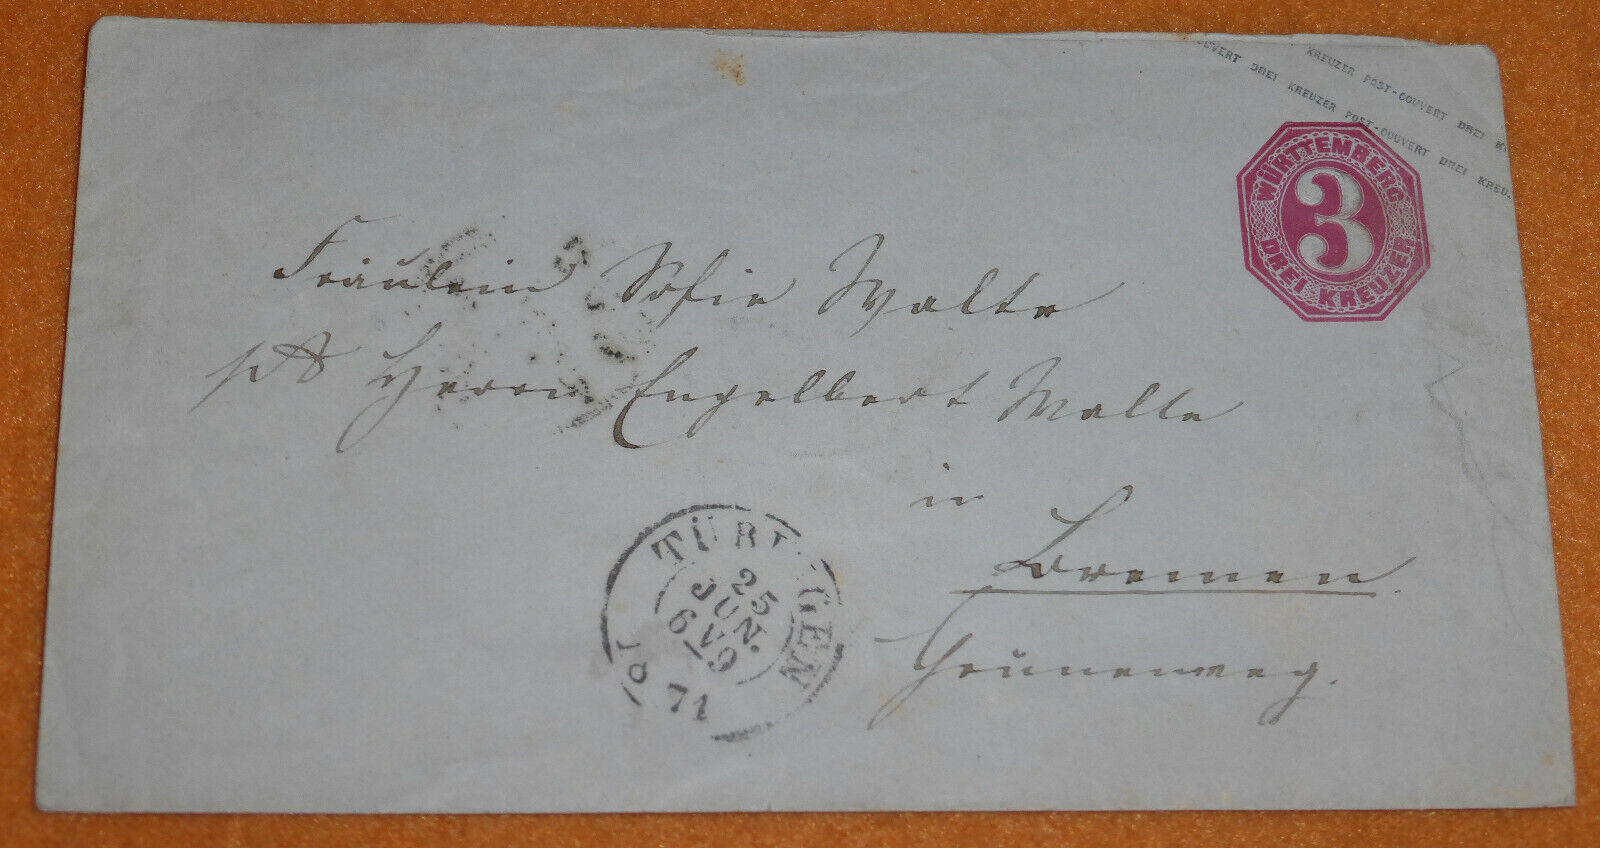 KREUZER POST-COUVERT DREI K
COUVERT DREI KREUZER POST-COUVERT DREI KREU
WÜRTTEMBERG
3
DREI KREUZER
Fräulein Sofie Walte
Herrn Engelbert Walte
in
Bremen
Grünenweg.
TÜBINGEN
25
JUN.
6 V 9
71